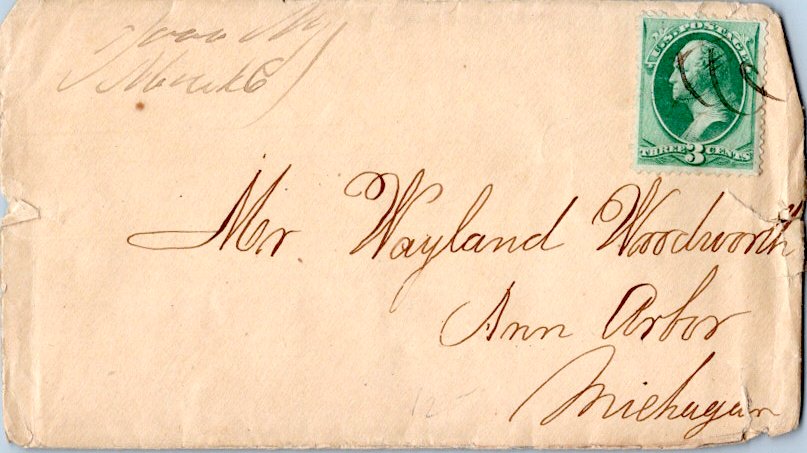 U.S. POSTAGE
THREE 3 CENTS
Mr Wayland Woodworth
Ann Arbor
Michagan